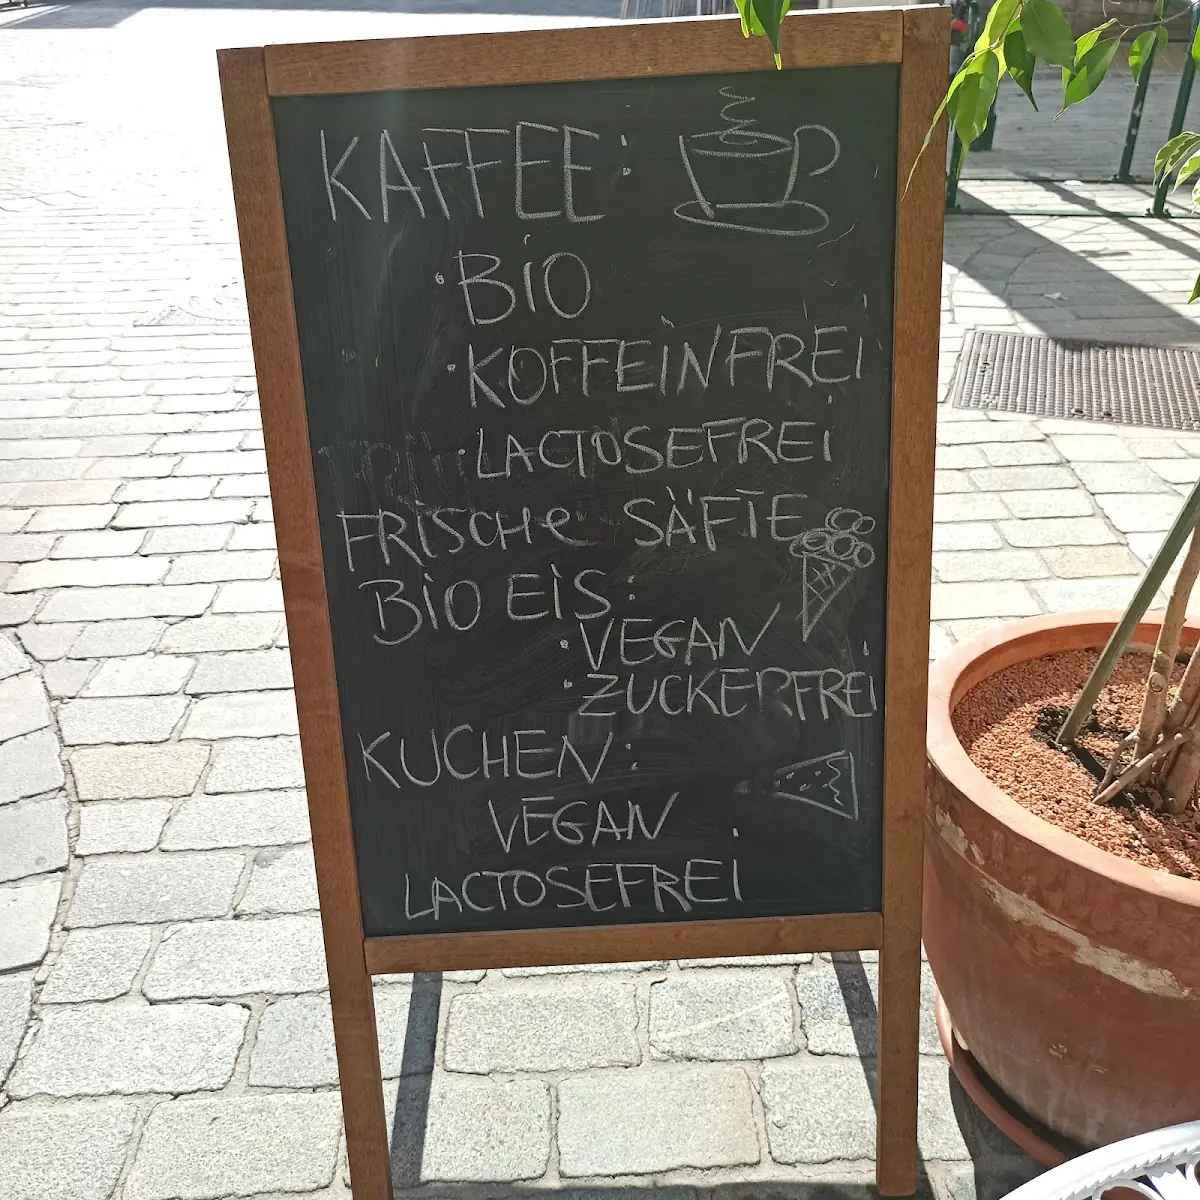 KAFFEE:
· BiO
· KOFFEiNFREi
· LACTOSEFREi
FRiSCHe SÄFTE
BiO EiS:
· VEGAN
· ZUCKERFREi
KUCHEN:
VEGAN
LACTOSEFREi